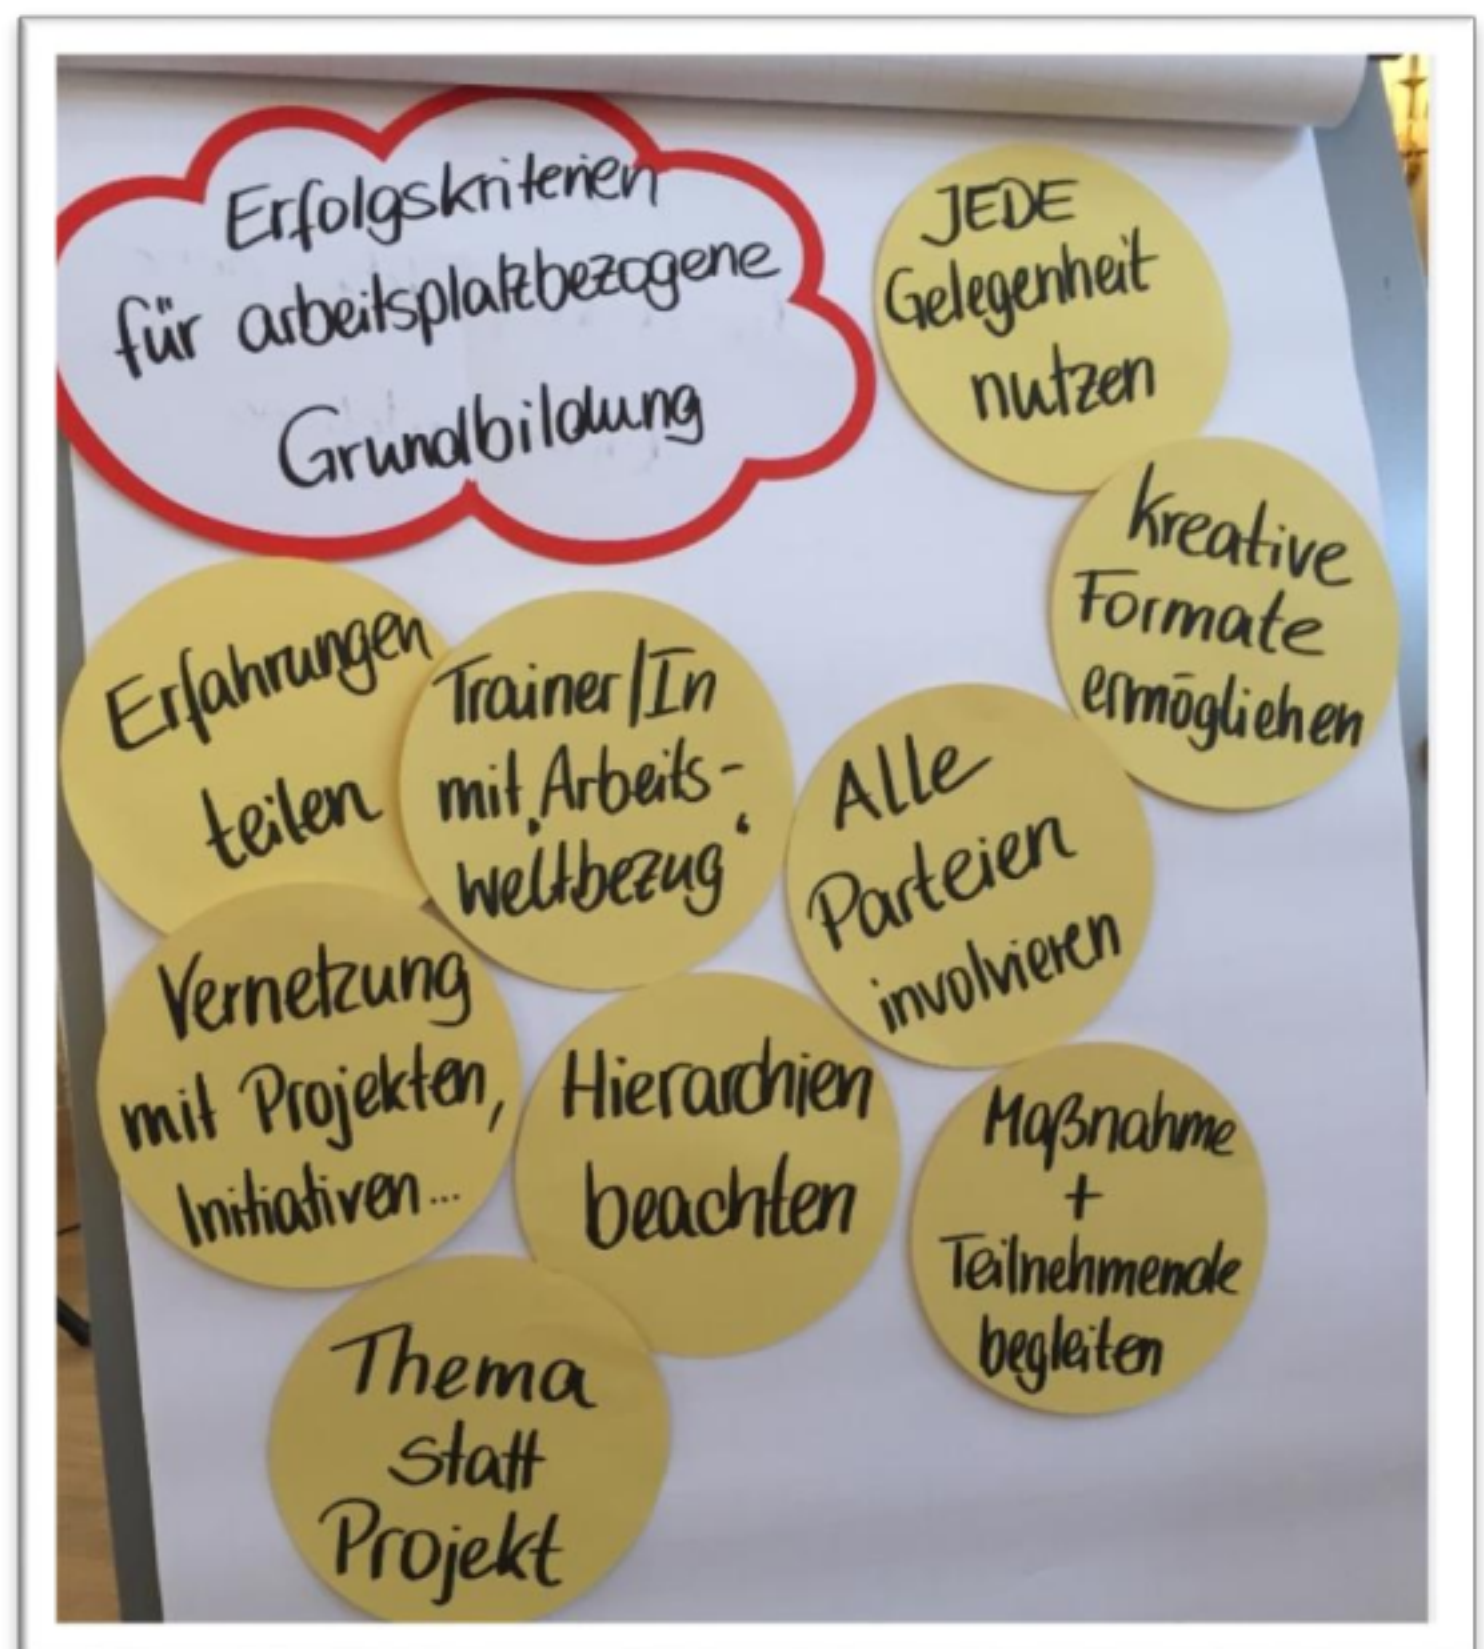 Erfolgskriterien
für arbeitsplatzbezogene
Grundbildung
JEDE
Gelegenheit
nutzen
kreative
Formate
ermöglichen
Erfahrungen
teilen
Trainer/In
mit Arbeits-
'weltbezug'
Alle
Parteien
involvieren
Vernetzung
mit Projekten,
Initiativen...
Hierarchien
beachten
Maßnahme
+
Teilnehmende
begleiten
Thema
statt
Projekt